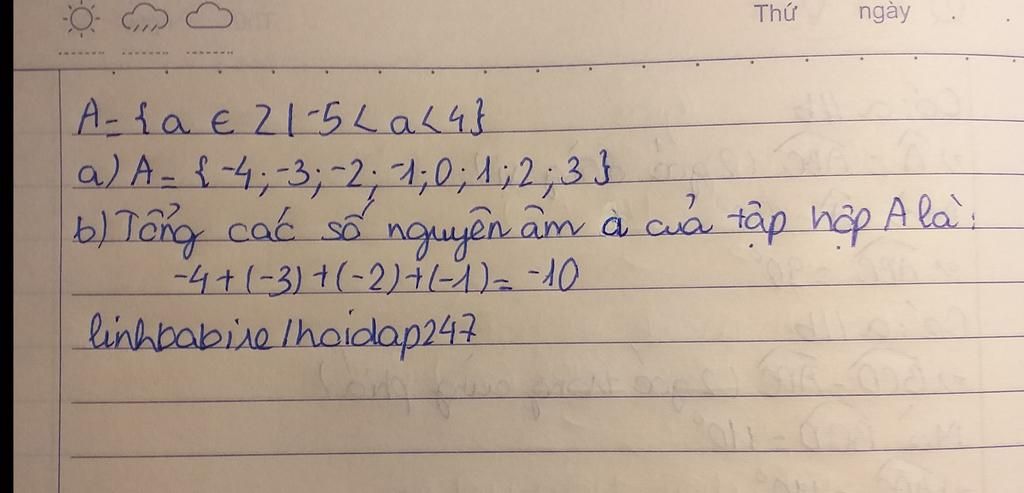 Thứ ngày . .
A = { a ∈ Z | -5 < a < 4 }
a) A = { -4 ; -3 ; -2 ; -1 ; 0 ; 1 ; 2 ; 3 }
b) Tổng các số nguyên âm a của tập hợp A là:
-4 + (-3) + (-2) + (-1) = -10
linhbabie/hoidap247